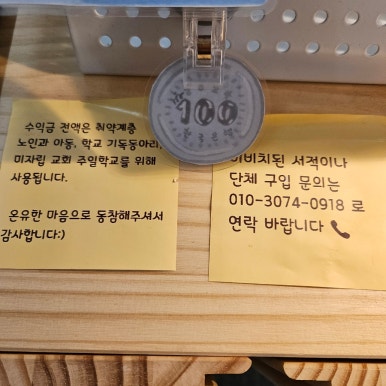 100
수익금 전액은 취약계층
노인과 아동, 학교 기독동아리,
미자립 교회 주일학교를 위해
사용됩니다.
온유한 마음으로 동참해주셔서
감사합니다:)
미비치된 서적이나
단체 구입 문의는
010-3074-0918 로
연락 바랍니다